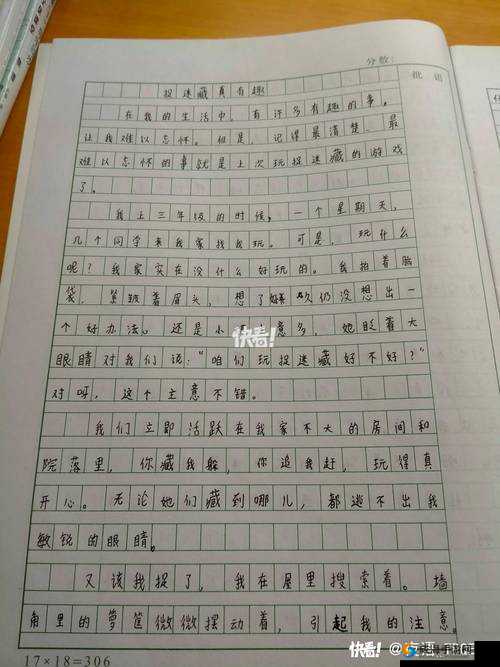 分数:
批语
捉迷藏真有趣
在我的生活中，有许多有趣的事，
让我难以忘怀。但是，记得最清楚、最
难以忘怀的事就是上次玩捉迷藏的游戏
了。
我上三年级的时候，一个星期天，
几个同学来我家找我玩。可是，玩什么
呢？我家实在没什么好玩的。我拍着脑
袋，紧皱着眉头，想了好久仍没想出一
个好办法。还是小意多，她眨着大
眼睛对我们说：“咱们玩捉迷藏好不好？”
对呀，这个主意不错。
我们立即活跃在我家不大的房间和
院落里，你藏我躲，你追我赶，玩得真
开心。无论她们藏到哪儿，都逃不出我
敏锐的眼睛。
又该我捉了，我在屋里搜索着。墙
角里的箩筐微微摆动着，引起我的注意
17×18=306
快看!
快看!